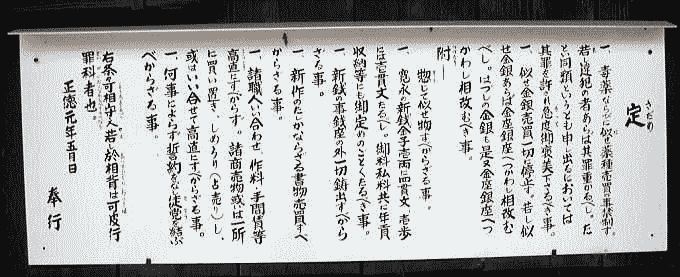 定
さだめ
一、毒薬ならびに似せ薬種売買の事禁制す。
若し違犯の者あらば其罪重かるべし。た
と同類といふとも申し出るにおいては
其罪を許され急度御褒美下さるべき事。
一、似せ金銀売買一切に停止す。若し似
せ金銀あらば金座銀座へつかわし相改む
べし。はづしの金銀も是又金座銀座へつ
かわし相改むべき事。
附
惣じて似せ物すべからざる事。
一、寛永の新銭金子壱両に四貫文、壱歩
には壱貫文たるべし。御料私料共に年貢
収納等にも御定めのごとくたるべき事。
一、新銭の事銭座の外一切鋳出すべから
ざる事。
一、新作のたしかならざる書物売買すべ
からざる事。
一、諸職人いい合わせ、作料・手間賃等
高直にすべからず。諸商売物或は一所
に買い置き、しめうり(占売り)し、
或はいい合せて高直にすべからざる事。
一、何事によらず誓約をなし徒党を結ぶ
べからざる事。
右条々可相守之若於相背は可被行
罪科者也。
正徳元年五月日
奉行